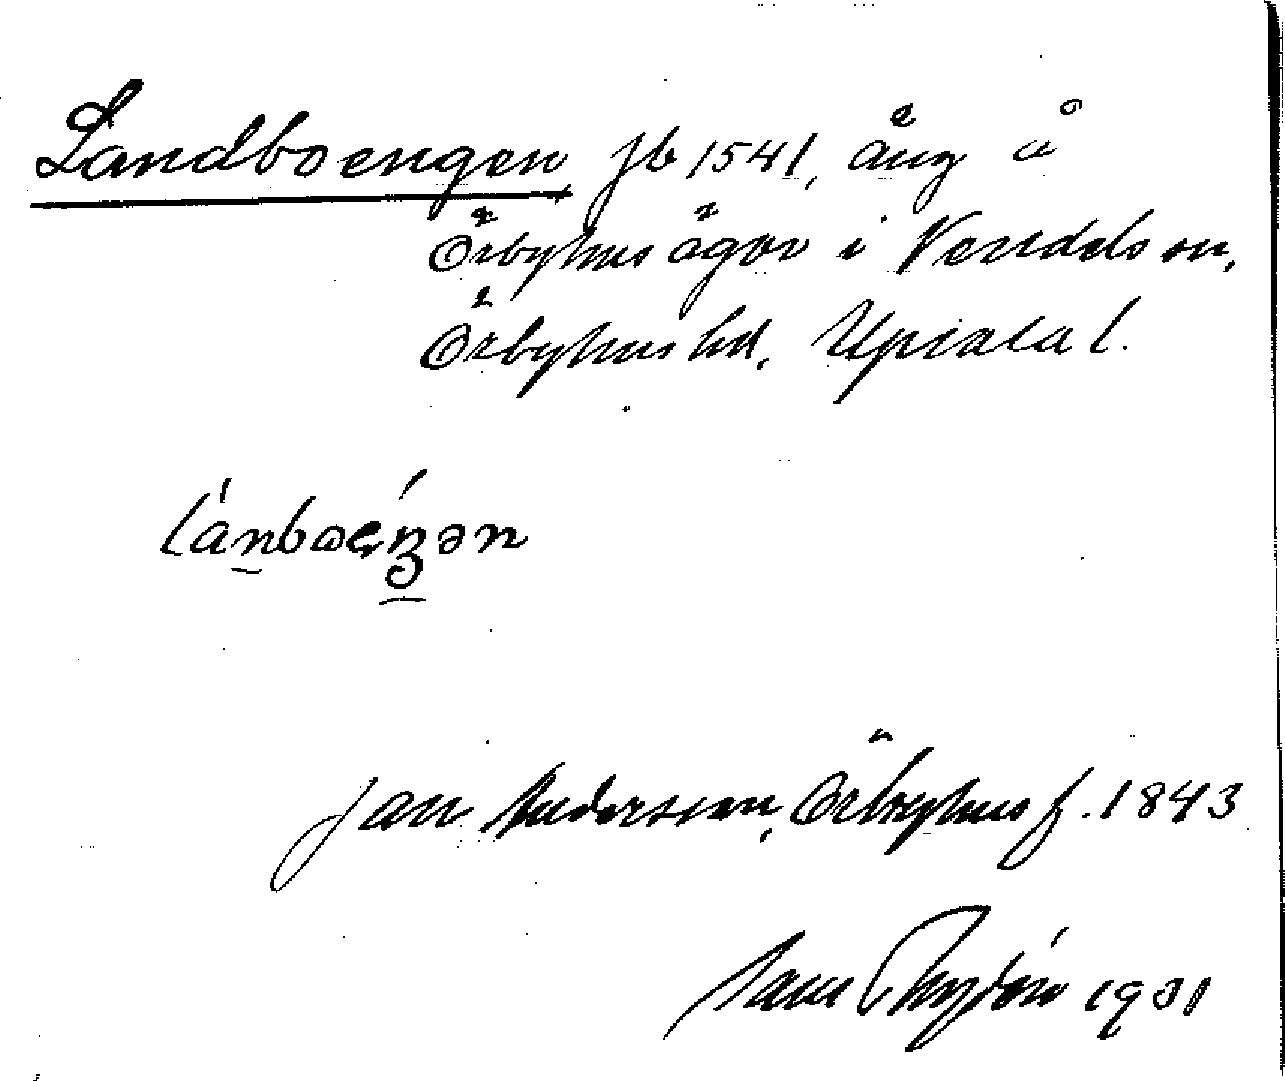 Landboengen jb 1541, äng å
Örbyhus ägor i Vendels sn,
Örbyhus hd, Upsala l.
lánboęŋən
Jan Andersson, Örbyhus f. 1843
1931